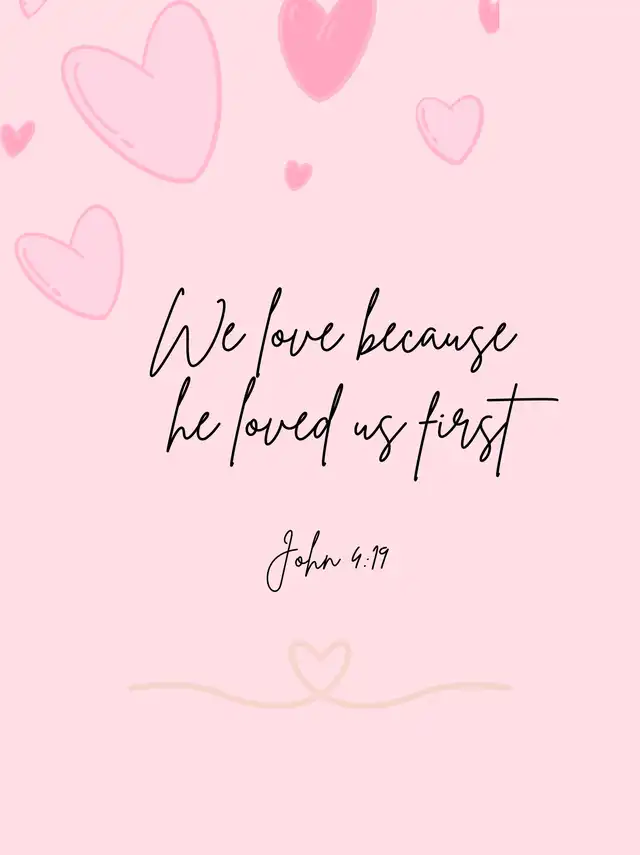 We love because
he loved us first
John 4:19